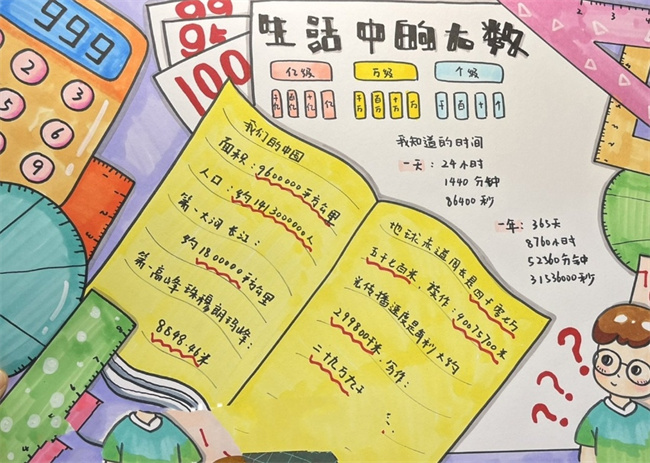 999
99
95
100
生活中的大数
亿级 万级 个级
千亿 百亿 十亿 亿 千万 百万 十万 万 千 百 十 个
2
3
5
6
9
我们的中国
面积：9600000平方公里
人口：约1413000000人
第一大河长江：
约1800000平方公里
第一高峰珠穆朗玛峰：
8848.46米
地球赤道周长是四千零七万
五千七百米 写作：40075700米
光传播速度是每秒大约
299800千米 写作：
二十九万九千
我知道的时间
一天：24小时
1440分钟
86400秒
一年：365天
8760小时
52360分钟
31536000秒
???